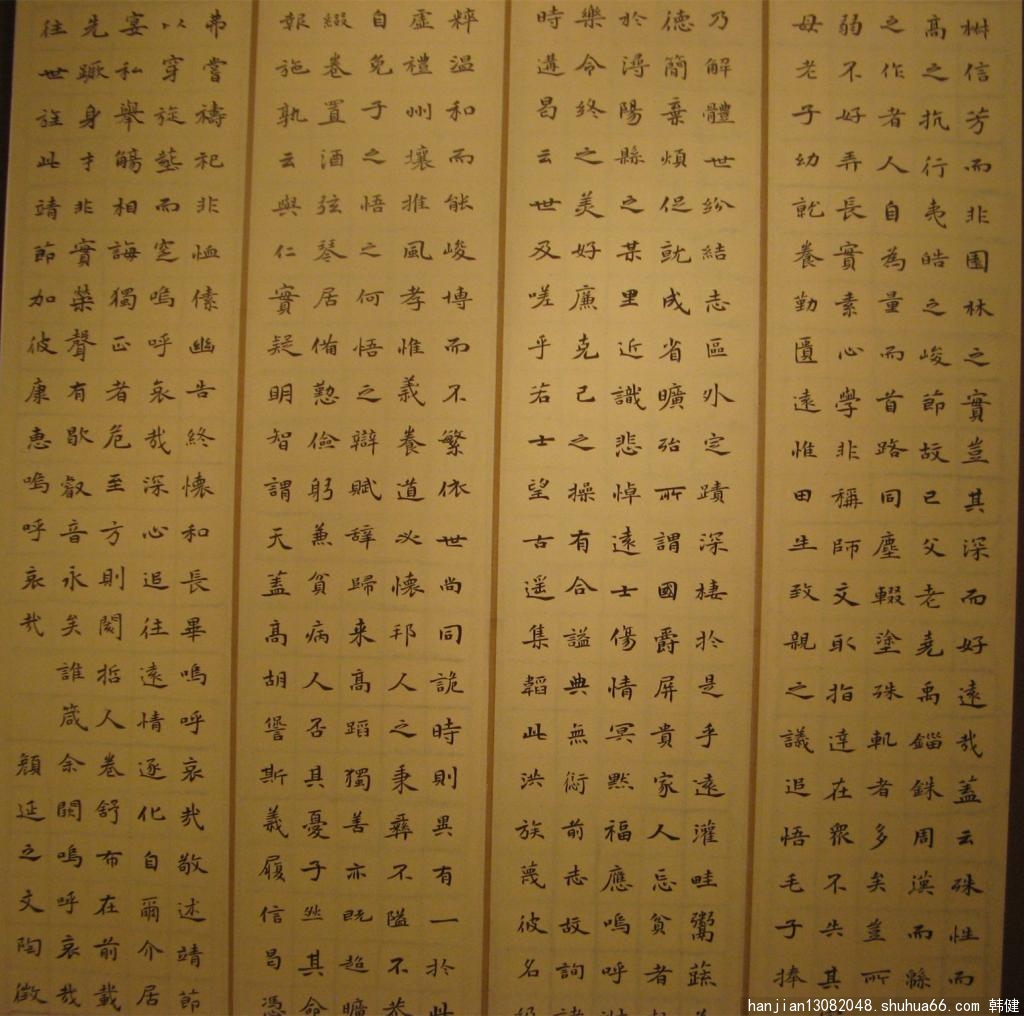 椒信芳而非園林之實豈其深而好遠哉蓋云殊性而
高之抗行夷皓之峻節故已父老堯禹錙銖周漢而緜
之作者人自為量而首路同塵輟塗殊軌者多矣豈所
弱不好弄長實素心學非稱師文取指達在眾不失其
母老子幼就養勤匱遠惟田生致親之議追悟毛子捧
乃解體世紛結志區外定蹟深棲於是乎遠灌畦鬻蔬
德簡棄煩促就成省曠殆所謂國爵屏貴家人忘貧者
於潯陽縣之某里近識悲悼遠士傷情冥默福應嗚呼
樂令終之美好廉克己之操有合謚典無愆前志故詢
時遘曷云世及嗟乎若士望古遥集韜此洪族蔑彼名
粹温和而能峻博而不繁依世尚同詭時則異有一於此
虛禮州壤推風孝惟義養道必懷邦人之秉彝不隘不恭
自免子之悟之何悟之辯賦辞歸来高蹈獨善亦既超曠
綴卷置酒弦琴居備懃儉躬兼貧病人否其憂子然其命
報施孰云與仁實疑明智謂天蓋高胡諐斯義履信曷憑
弗嘗禱祀非恤傃幽告終懷和長畢嗚呼哀哉敬述靖節
以穿旋葬而窆嗚呼哀哉深心追往遠情逐化自爾介居
宴私舉觴相誨獨正者危至方則閡哲人卷舒布在前載
先蹶身才非實榮聲有歇叡音永矣誰箴余闕嗚呼哀哉
往世旌此靖節加彼康惠嗚呼哀哉 顏延之文陶徵
hanjian13082048.shuhua66.com 韩健